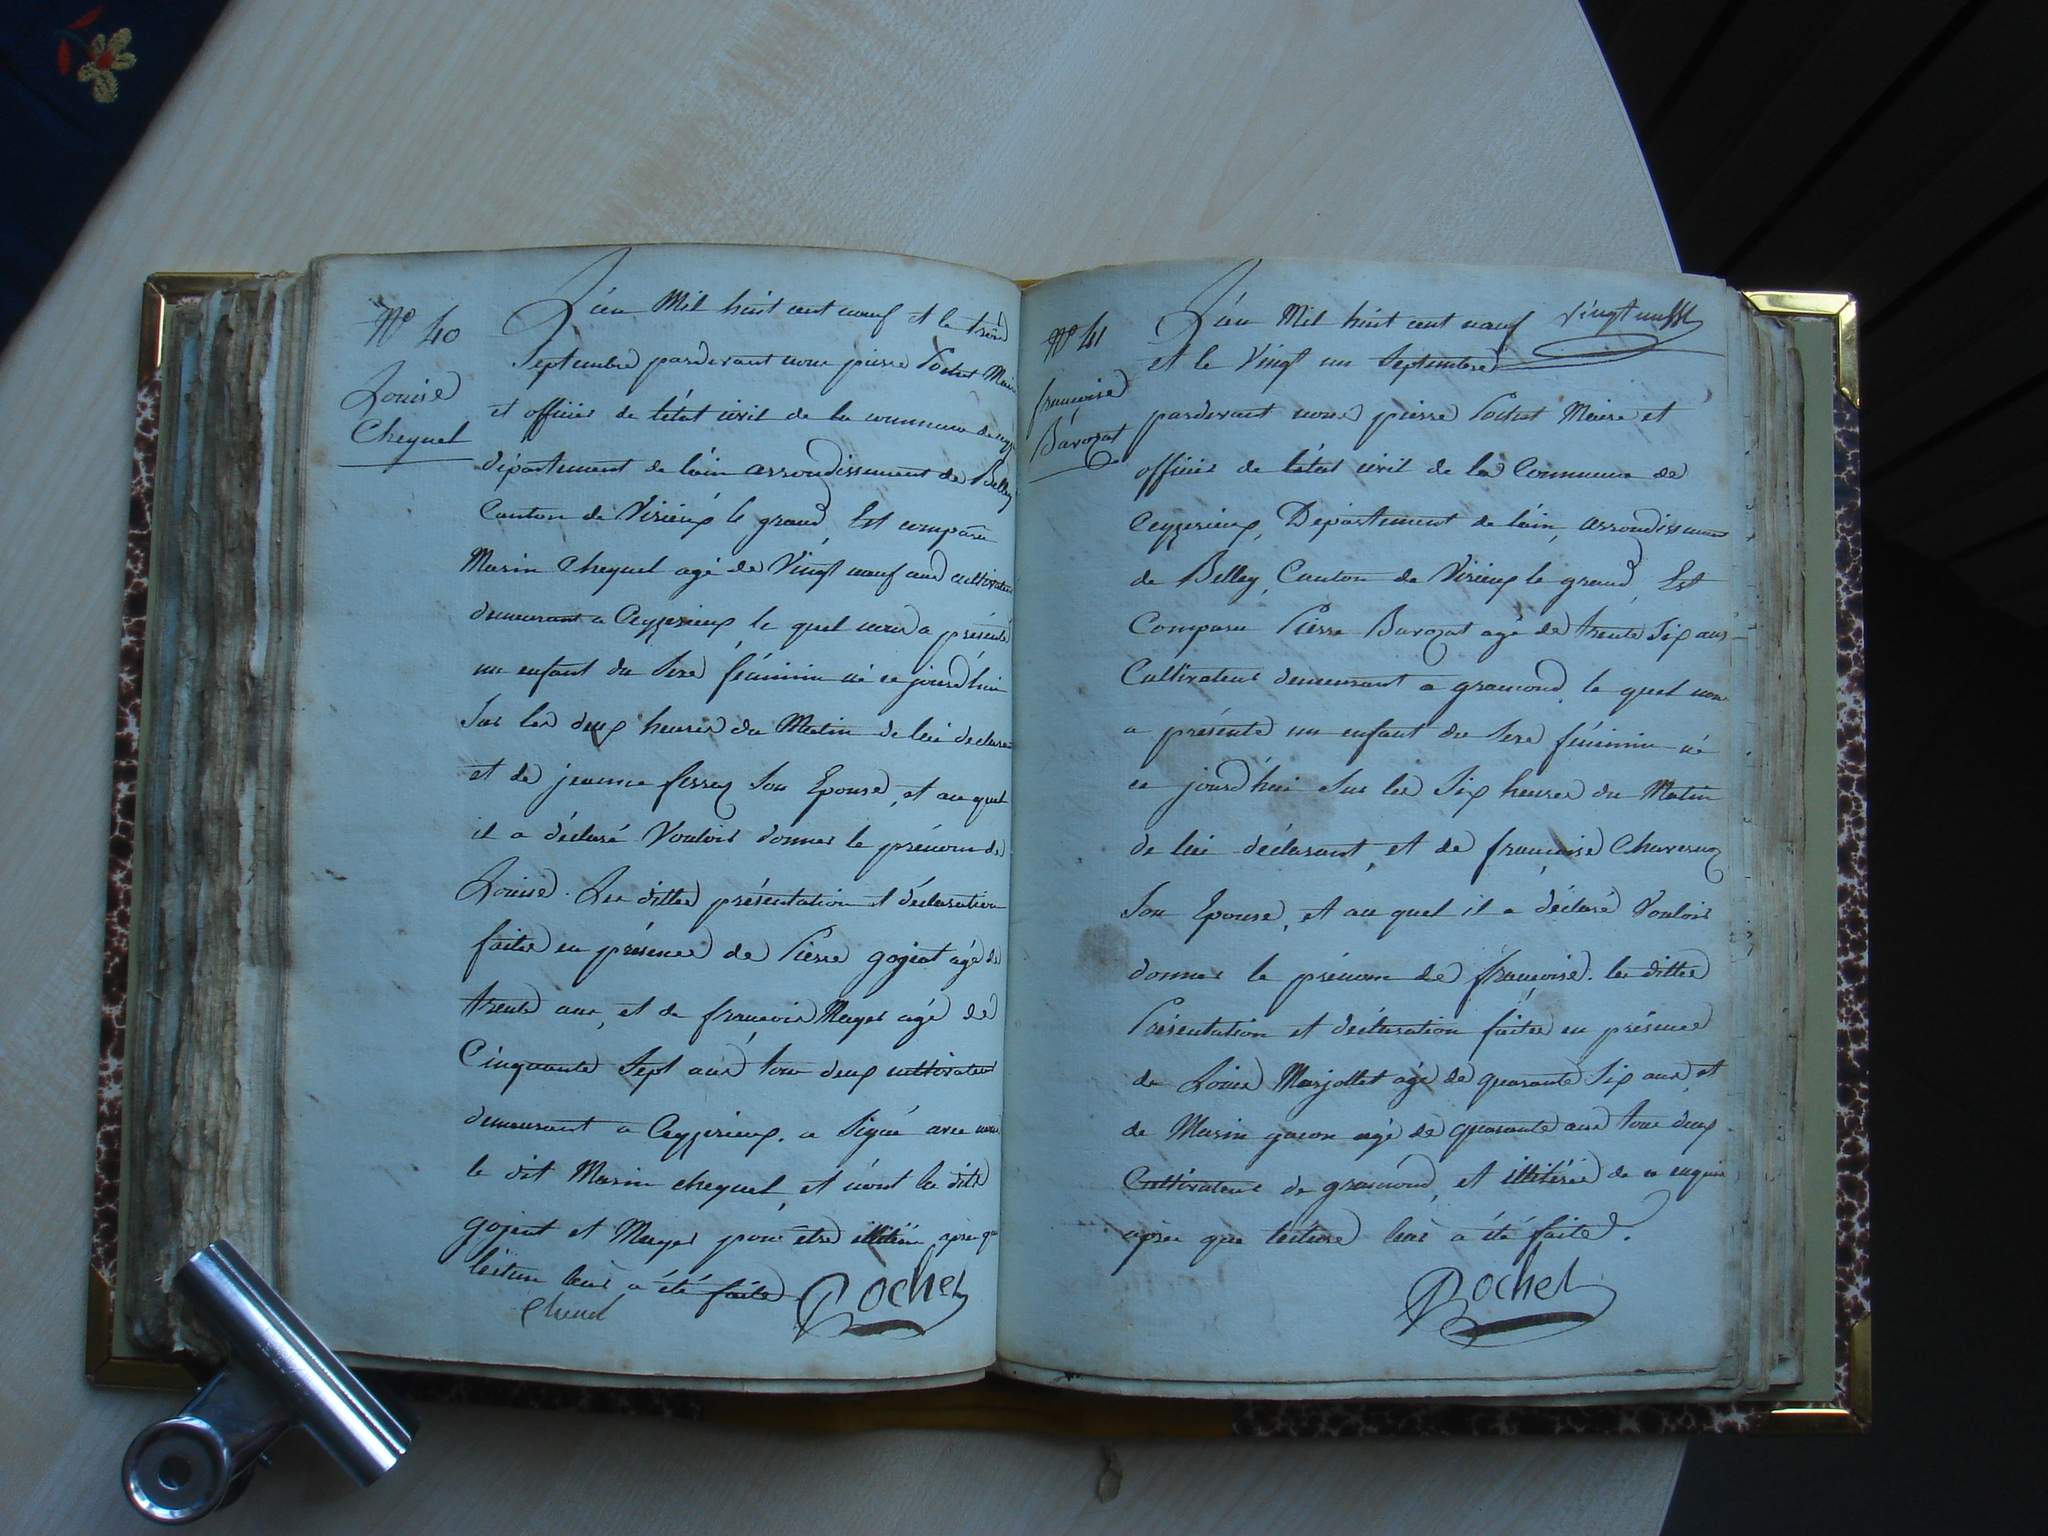 N° 40
Louise
Chequel
L'an Mil huit cent neuf et le trois
Septembre pardevant nous pierre Pochet Maire
et officier de létat civil de la commune de
département de láin arrondissement de Belley
Canton de Virieux le grand, Est comparu
Marin Chequel agé de Vingt neuf ans cultivateur
demeurant a Ceyzerieux, le quel nous a présenté
un enfant du Sexe féminin né ce jourd'hui
Sur les deux heures du Matin de lui déclarant
et de jeanne son Epouse, et au quel
il a déclaré Vouloir donner le prénom de
Louise. Les dittes présentation et déclaration
faites en présence de Pierre gojat agé de
trente ans, et de francois Mayer agé de
Cinquante Sept ans tous deux cultivateurs
demeurant a Ceyzerieux. a Signé avec nous
le dit Marin chequel, et n'ont les dits
gojat et Mayer pour être après que
lecture leur a été faite
Pochet
vingt
N° 41
françoise
Barozat
L'an Mil huit cent neuf
et le Vingt un Septembre
pardevant nous pierre Pochet Maire et
officier de létat civil de la Commune de
Ceyzerieux, Département de láin, arrondissement
de Belley, Canton de Virieux le grand, Est
Comparu Pierre Barozat agé de trente Six ans
Cultivateur demeurant a gramond, le quel nous
a présenté un enfant du Sexe féminin né
ce jourd'hui Sur les Six heures du Matin
de lui déclarant, et de françoise
Son Epouse, et au quel il a déclaré Vouloir
donner le prénom de françoise. les dittes
Présentation et déclaration faites en présence
de Louis Marjollet agé de quarante Six ans, et
de Marin gacon agé de quarante ans tous deux
Cultivateurs de gramond, et illitérés de ce enquis
après que lecture leur a été faite.
Pochet